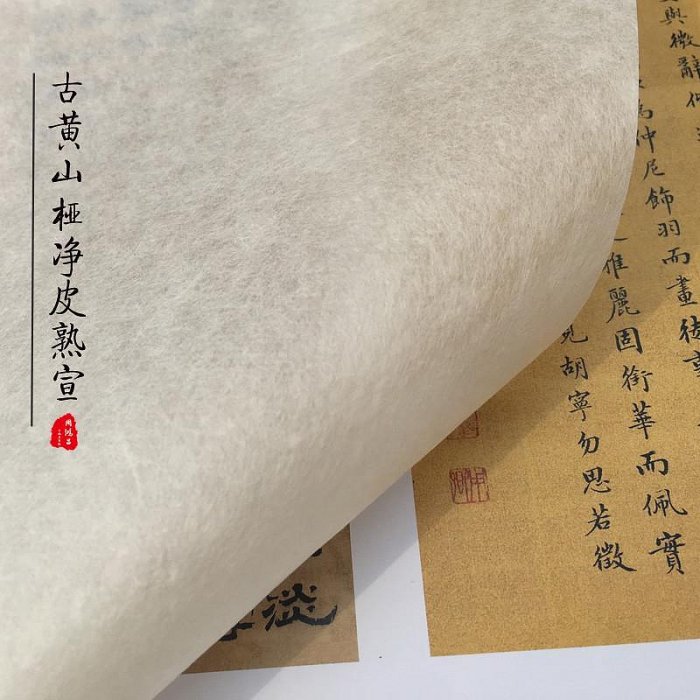 古黄山桠净皮熟宣
與微辭
為仲尼飾羽而畫徒事
雅麗固銜華而佩實
見胡寧勿思若徵
淡